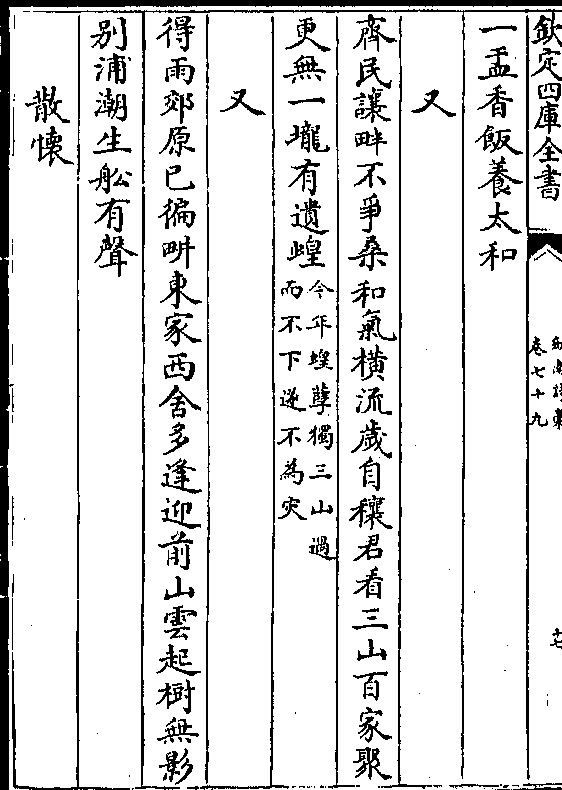 欽定四庫全書
劍南詩稾
卷七十九
十七
一盂香飯養太和
又
齊民讓畔不爭桑和氣橫流歲自穰君看三山百家聚
更無一壠有遺蝗今年蝗孽獨三山過
而不下遂不為灾
又
得雨郊原已徧畊東家西舍多逢迎前山雲起樹無影
别浦潮生舩有聲
散懷